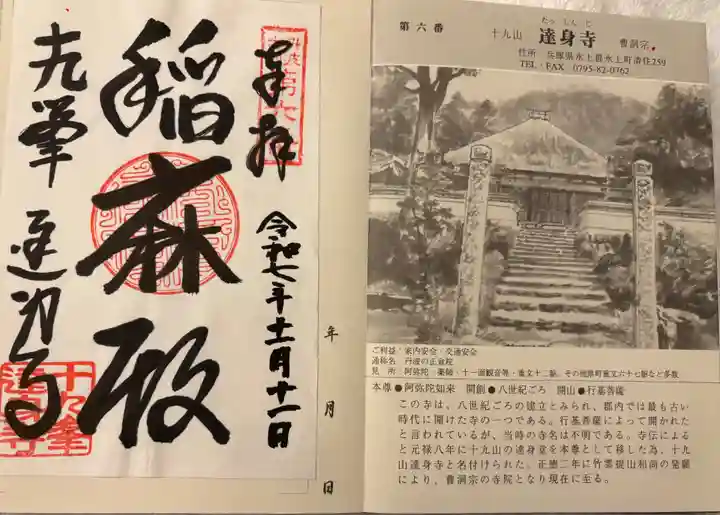 奉拝
令和七年十一月十一日
稲麻殿
十九峯
達身寺
年
月
日
第六番
たっしんじ
十九山 達身寺 曹洞宗
住所 兵庫県氷上郡氷上町清住259
TEL・FAX 0795-82-0762
ご利益 家内安全・交通安全
通称名 丹波の正倉院
見所 阿弥陀・薬師・十一面観音等・重文十二躯、その他県町重文六十七躯など多数
本尊●阿弥陀如来 開創●八世紀ごろ 開山●行基菩薩
この寺は、八世紀ごろの建立とみられ、郡内では最も古い
時代に開けた寺の一つである。行基菩薩によって開かれた
と言われているが、当時の寺名は不明である。寺伝による
と元禄八年に十九山の達身堂を本尊として移した為、十九
山達身寺と名付けられた。正徳二年に竹雲提山和尚の発願
により、曹洞宗の寺院となり現在に至る。